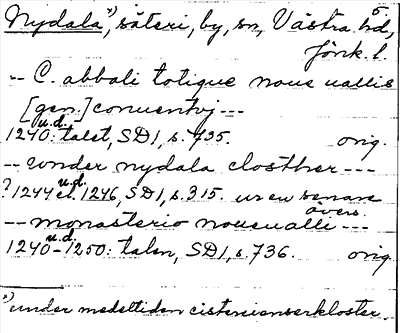 Nydala x), säteri, by, sn, Västra hd,
Jönk. l.
-- C. abbati totique noue uallis
[gen.] conuentvj ---
u.d.
1240: talet, SD1, s. 735. orig.
-- wnder nydala closther ---
? 1244 el. u.d. 1246, SD1, s. 315. ur en senare
övers.
-- monasterio noueualli ---
u.d.
1240-1250: talen, SD1, s. 736. orig.
x) under medeltiden cistercienserkloster.